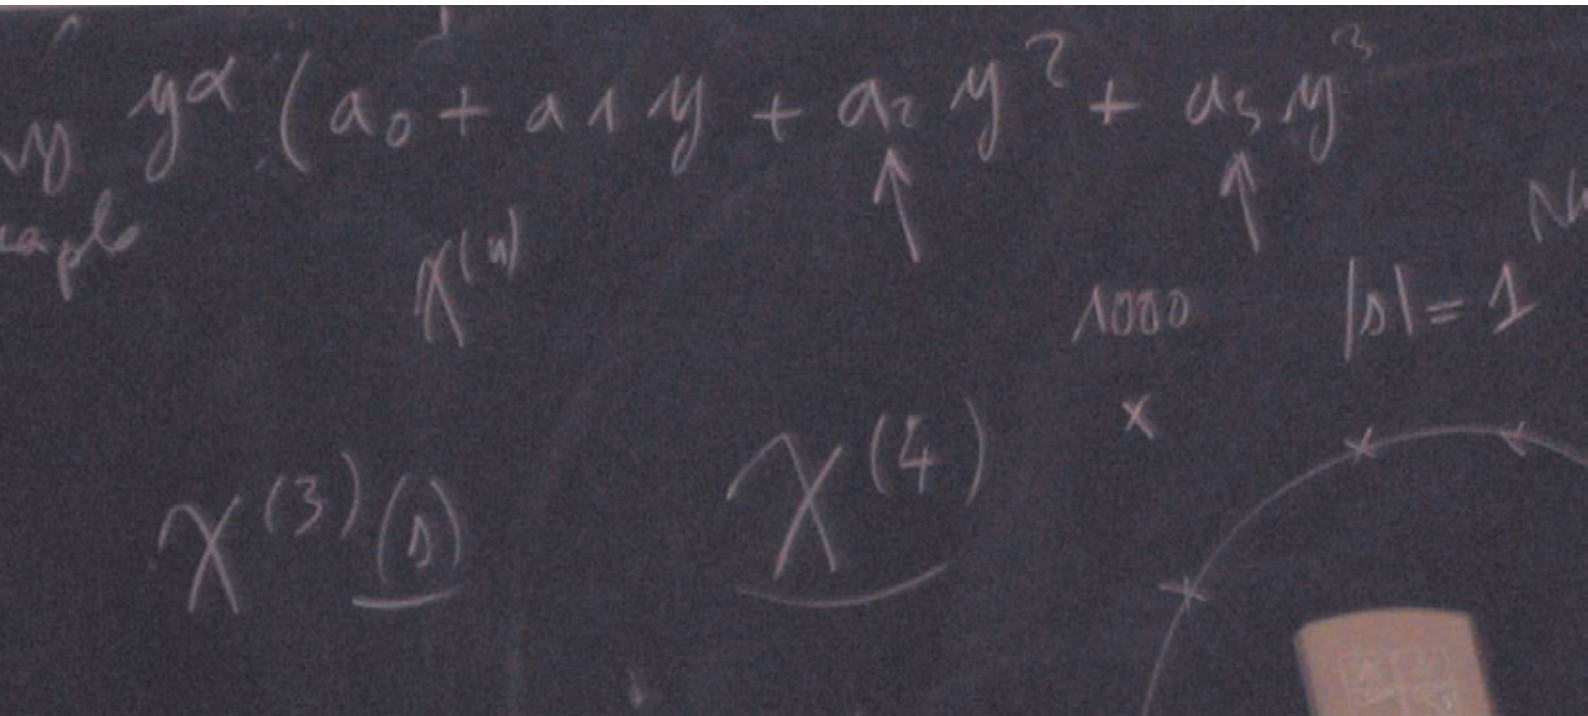 y^α (a₀ + a1y + a₂ y² + a₃ y³
χ^(n)
1000 |s| = 1
χ^(3)(s) χ^(4)